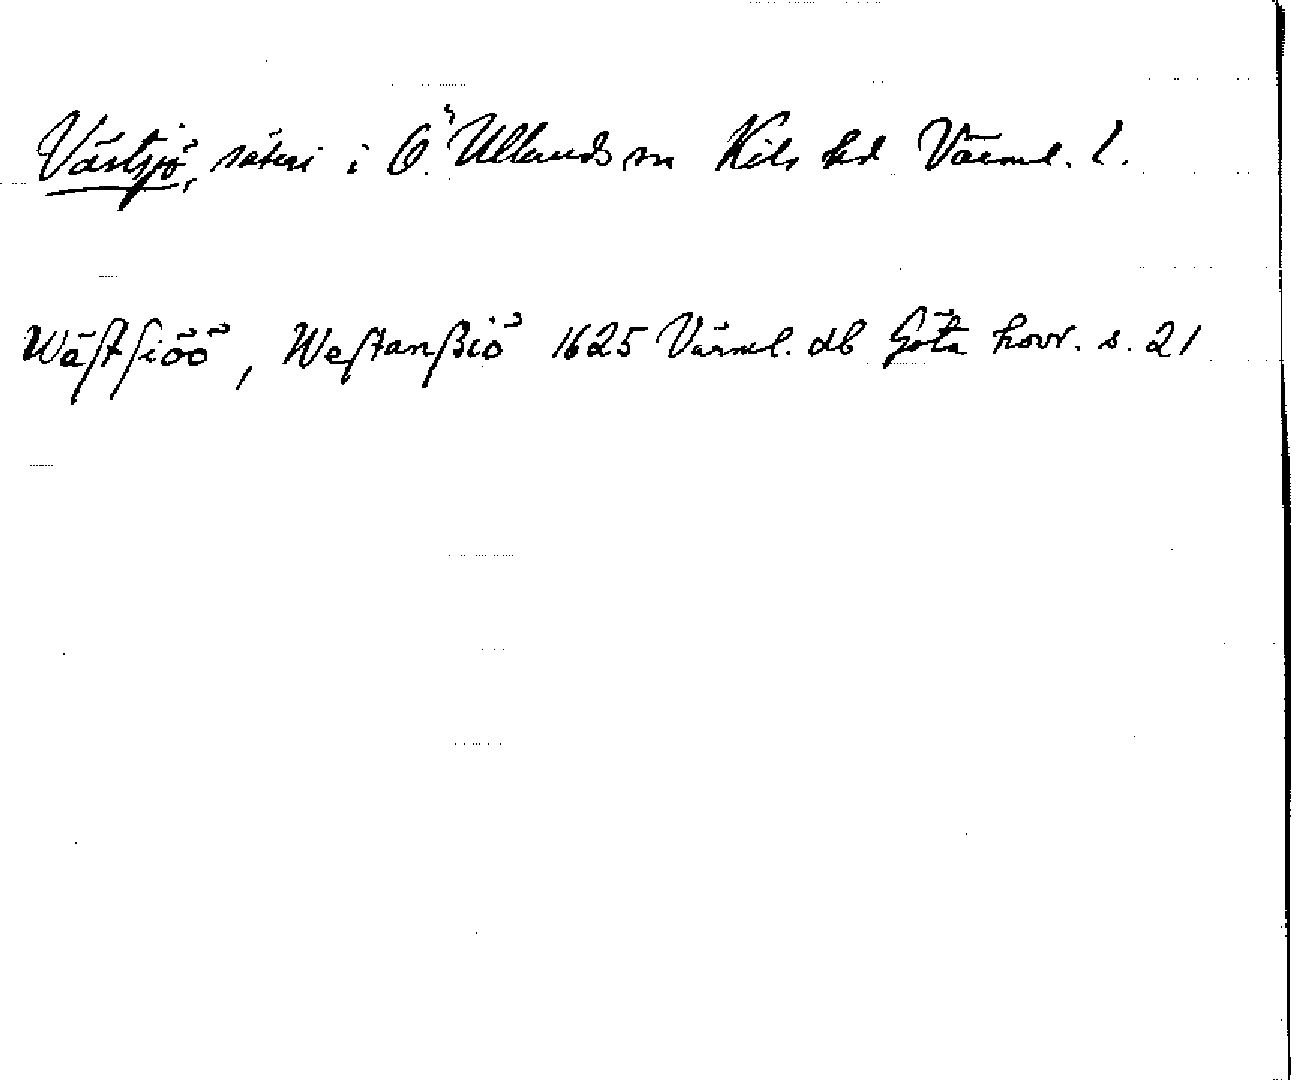 Västsjö, säteri i Ö. Ulleruds sn Kils hd Värml. l.
Wästsiöö, Westanßiö 1625 Värml. db Göta hovr. s. 21